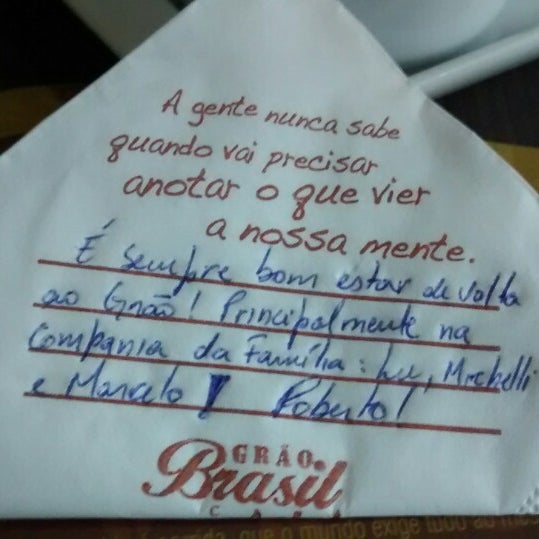 A gente nunca sabe
quando vai precisar
anotar o que vier
a nossa mente.
É sempre bom estar de volta
ao Grão! Principalmente na
Compania da Família: Lu, Michelli
e Marcelo! Roberto!
GRÃO
Brasil
CAFÉ
que o mundo exige tudo ao mes